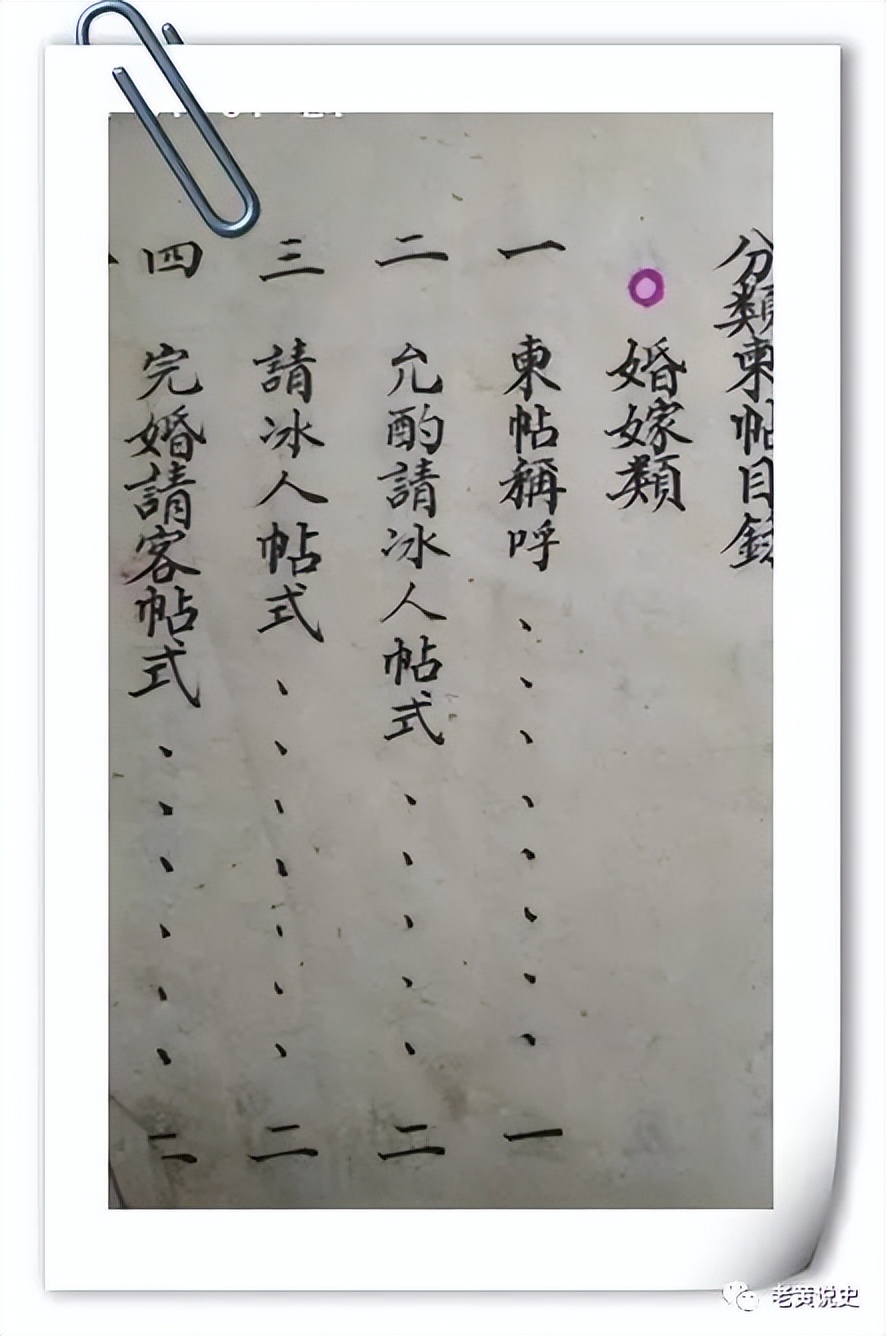 分類柬帖目錄
婚嫁類
一 柬帖稱呼、、、、、、、、一
二 允酌請冰人帖式、、、、、二
三 請冰人帖式、、、、、、、二
四 完婚請客帖式、、、、、、二
老黄说史